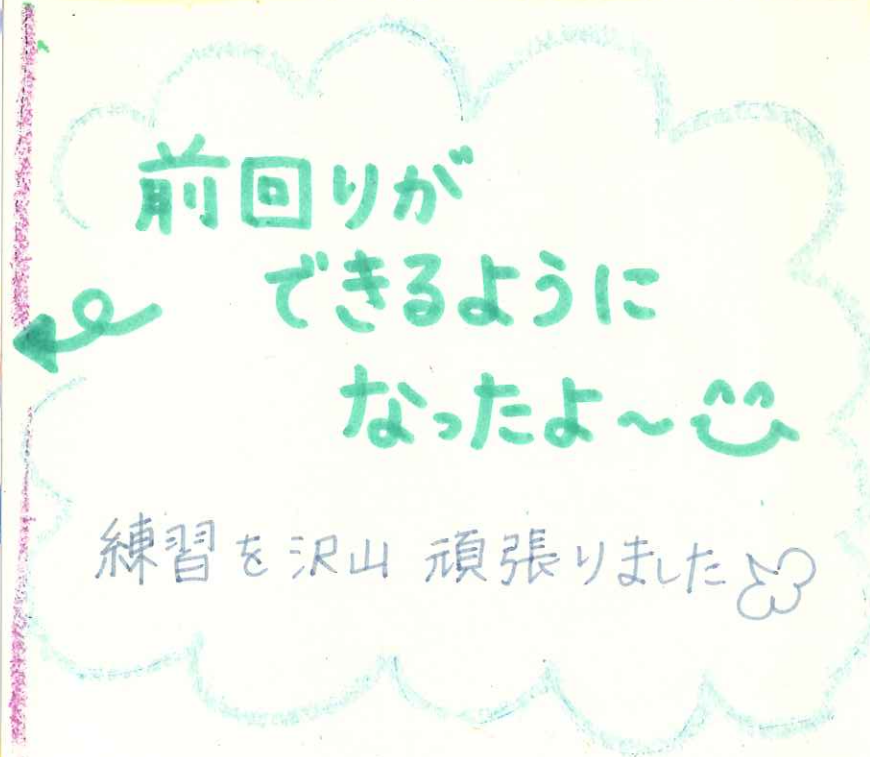 前回りが
できるように
なったよ〜
練習を沢山 頑張りました